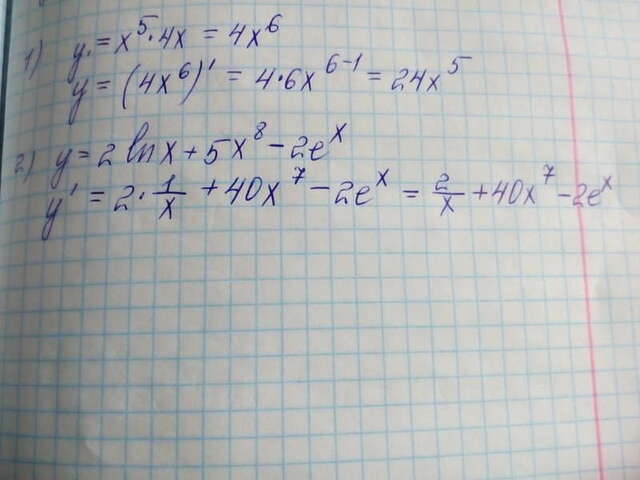 1) y. = x⁵·4x = 4x⁶
y = (4x⁶)' = 4·6x⁶⁻¹ = 24x⁵
2) y = 2 ln x + 5x⁸ - 2eˣ
y' = 2·1/x + 40x⁷ - 2eˣ = 2/x + 40x⁷ - 2eˣ